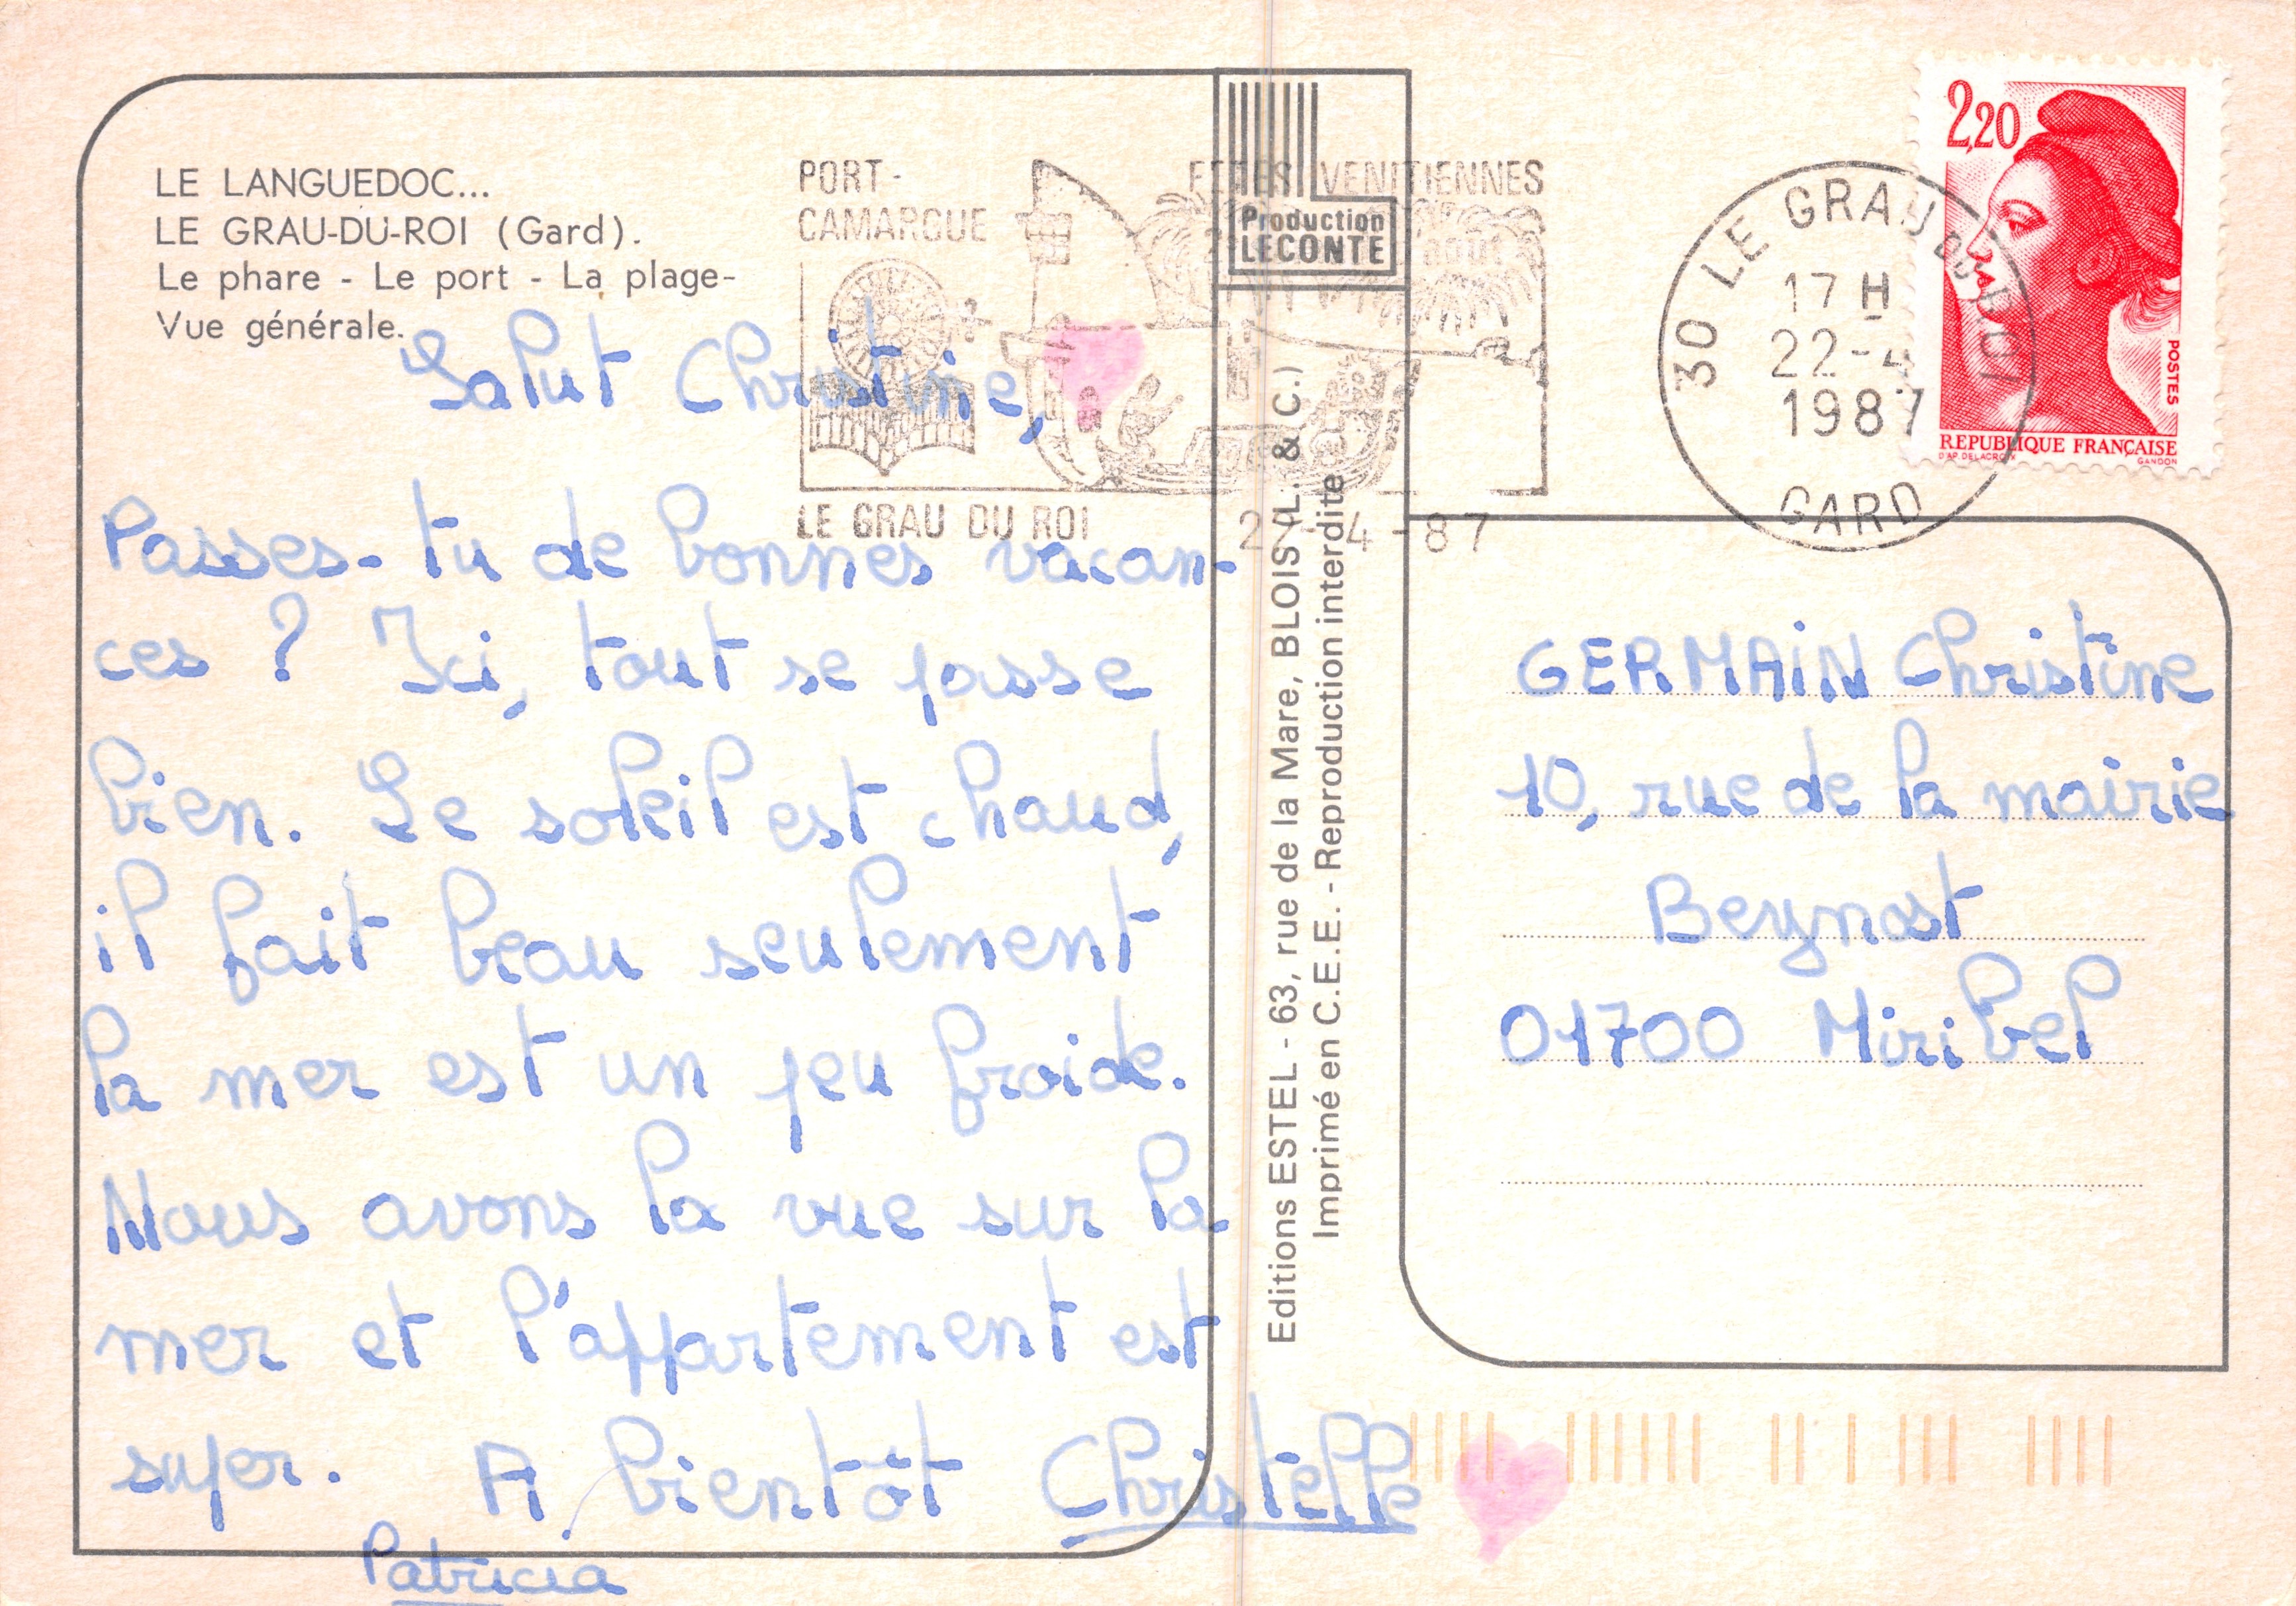 LE LANGUEDOC...
LE GRAU-DU-ROI (Gard).
Le phare - Le port - La plage-
Vue générale.
Salut Christine,
Passes-tu de bonnes vacan-
ces ? Ici, tout se passe
bien. Le soleil est chaud,
il fait beau seulement
la mer est un peu froide.
Nous avons la vue sur la
mer et l'appartement est
super. A bientôt Christelle
Patricia
PORT-
CAMARGUE
FETES VENITIENNES
août
LE GRAU DU ROI
22-4-87
Production
LECONTE
Editions ESTEL - 63, rue de la Mare, BLOIS (L. & C.)
Imprimé en C.E.E. - Reproduction interdite
30 LE GRAU DU ROI
17 H
22-4
1987
GARD
2,20
POSTES
REPUBLIQUE FRANÇAISE
D'AP. DELACROIX
GANDON
GERMAIN Christine
10, rue de la mairie
Beynost
01700 Miribel